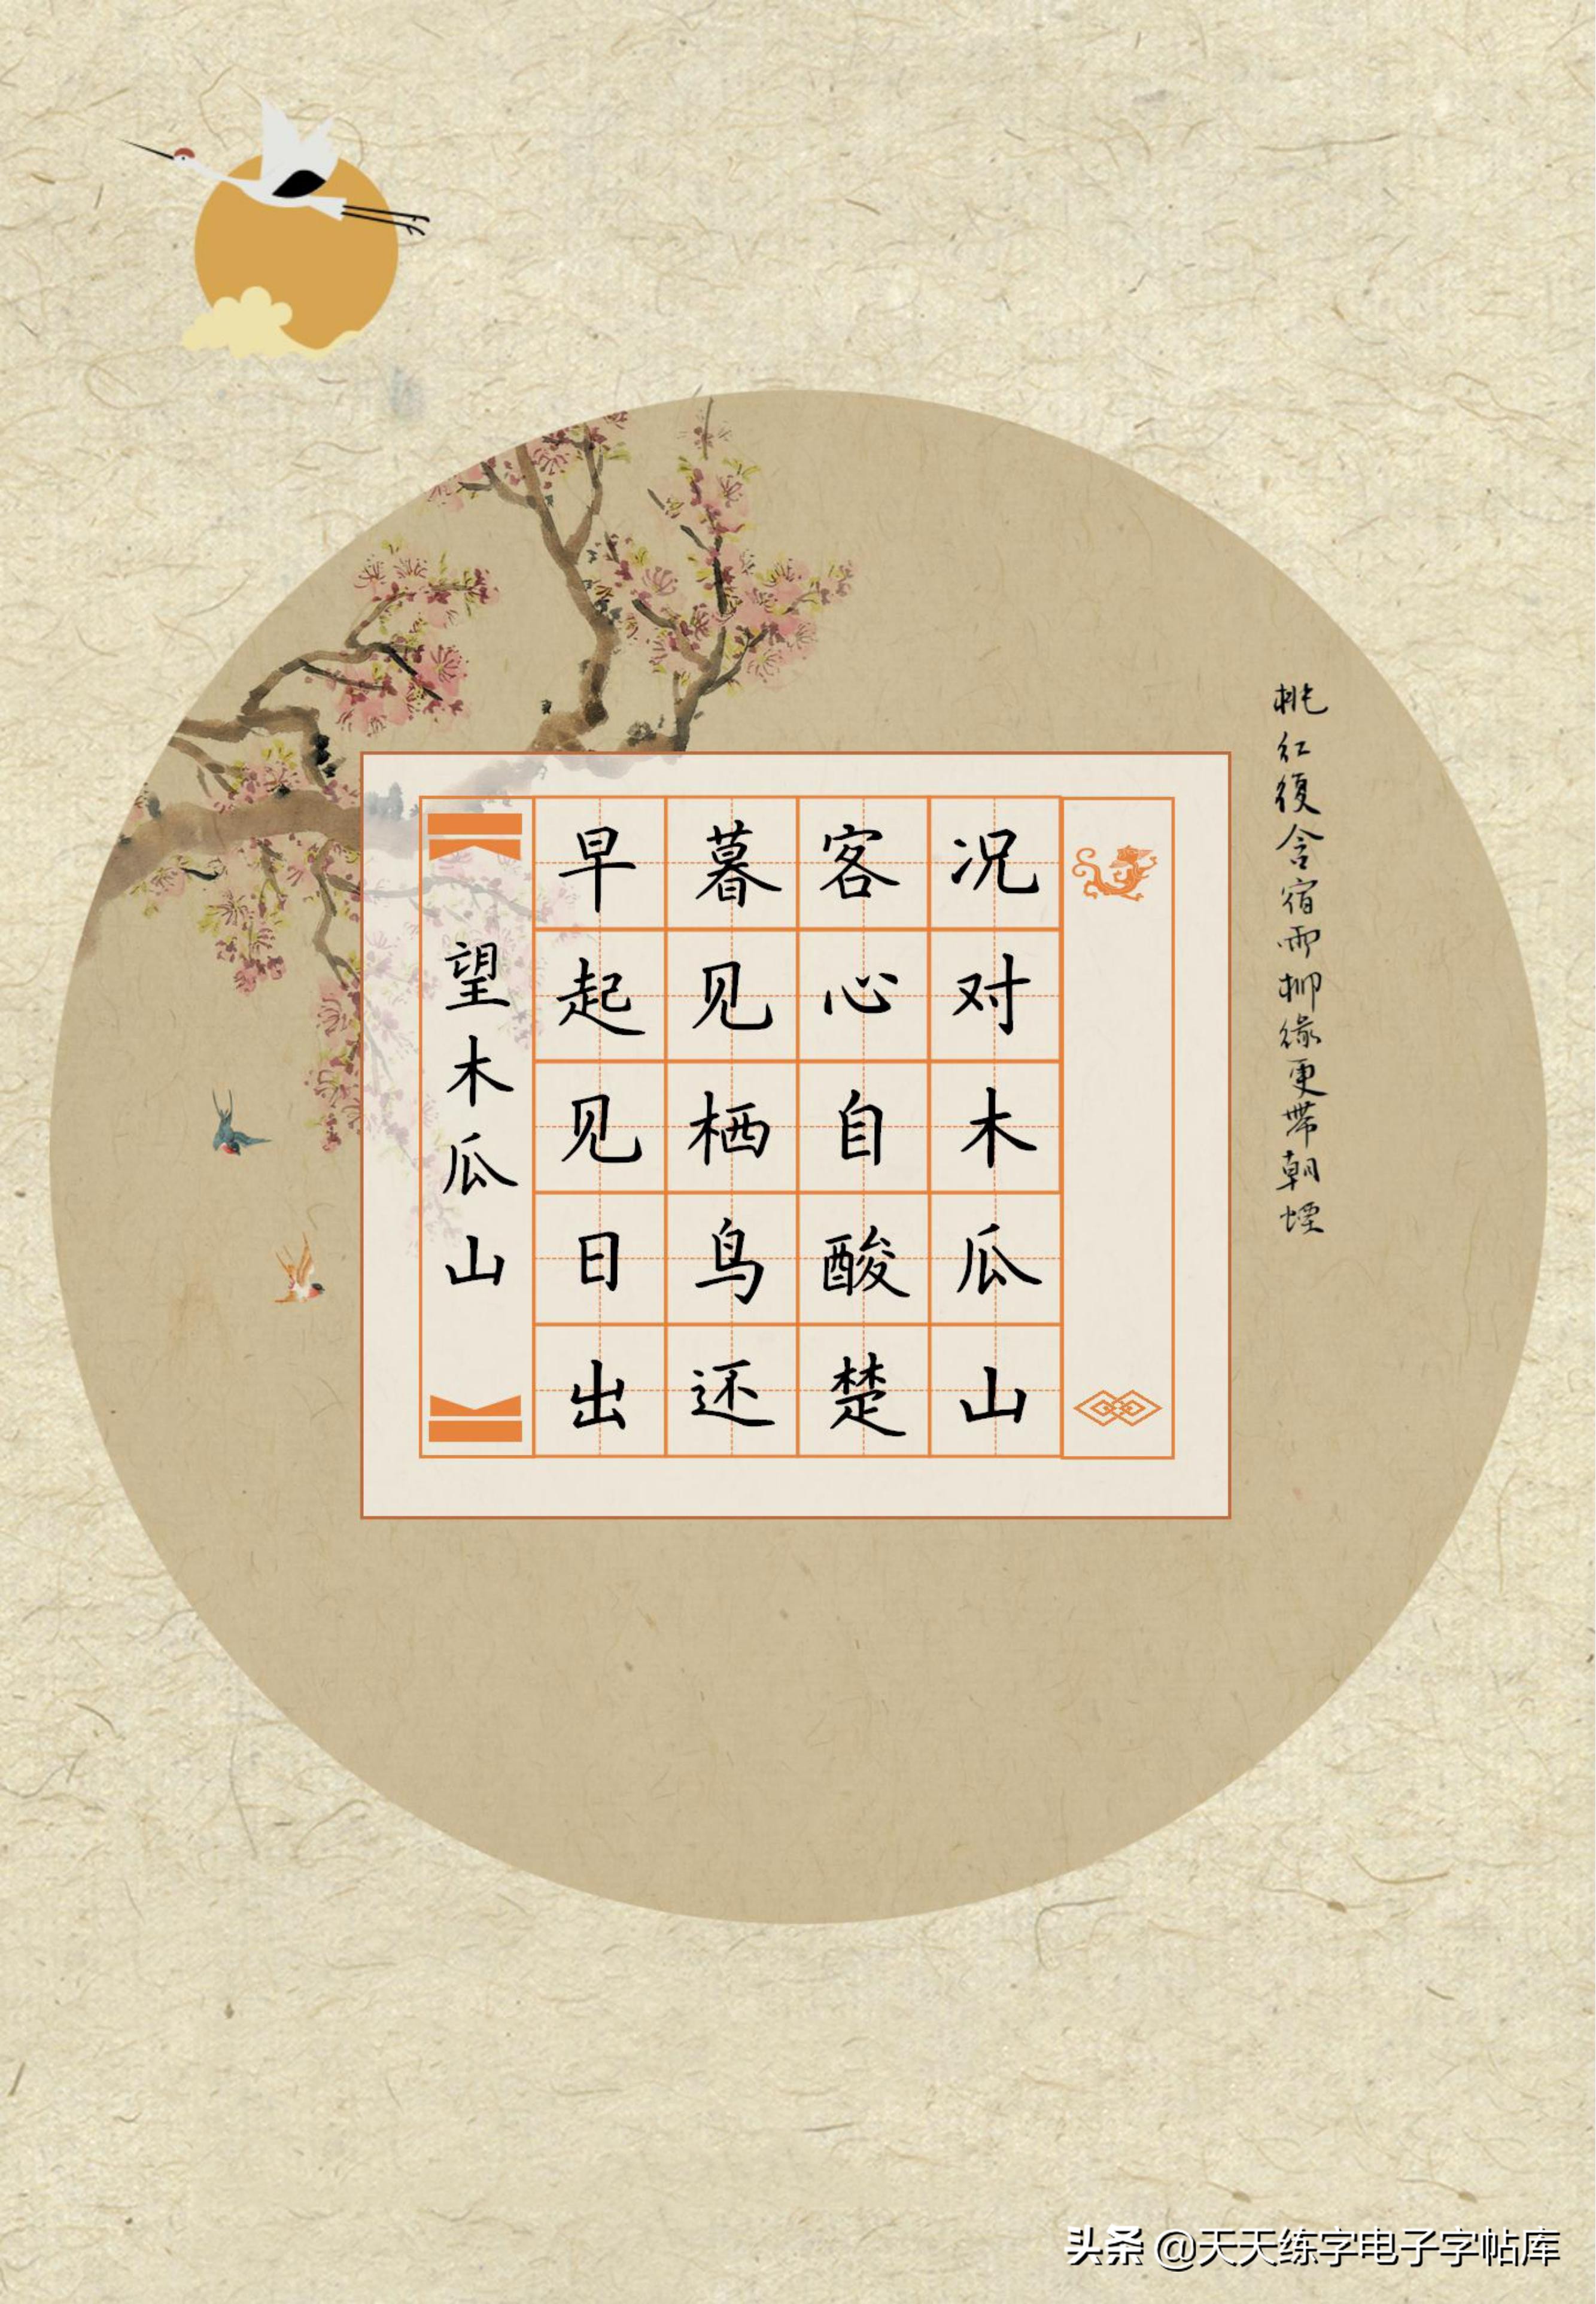 望木瓜山
早起见日出
暮见栖鸟还
客心自酸楚
况对木瓜山
桃红復含宿雨柳緑更带朝煙
头条 @天天练字电子字帖库